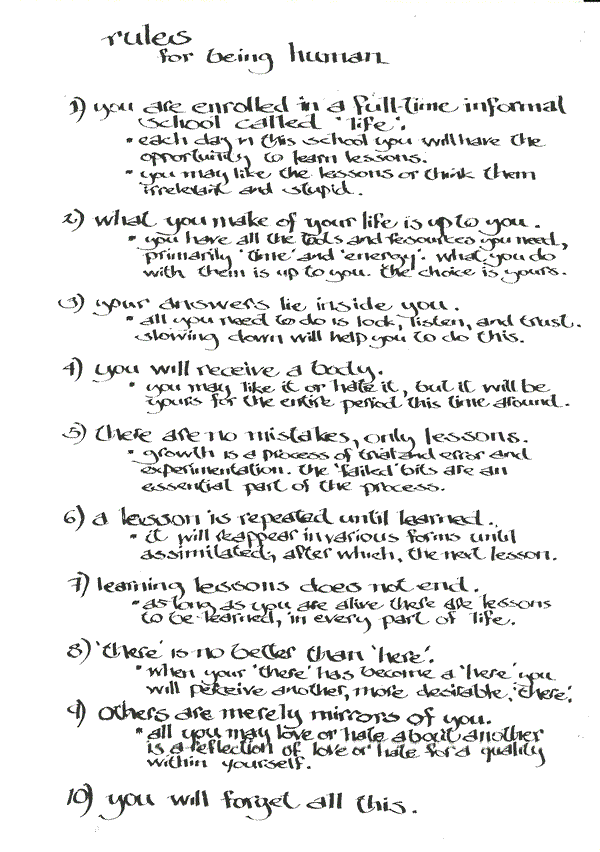 rules
for being human
1) you are enrolled in a full-time informal
school called 'life'.
• each day n this school you will have the
opportunity to learn lessons.
• you may like the lessons or think them
irrelevant and stupid.
2) what you make of your life is up to you.
• you have all the tools and resources you need,
primarily 'time' and 'energy'. what you do
with them is up to you. the choice is yours.
3) your answers lie inside you.
• all you need to do is look, listen, and trust.
slowing down will help you to do this.
4) you will receive a body.
• you may like it or hate it, but it will be
yours for the entire period this time around.
5) there are no mistakes, only lessons.
• growth is a process of trial and error and
experimentation. the 'failed' bits are an
essential part of the process.
6) a lesson is repeated until learned.
• it will reappear in various forms until
assimilated; after which, the next lesson.
7) learning lessons does not end.
• as long as you are alive there are lessons
to be learned, in every part of life.
8) 'there' is no better than 'here'.
• when your 'there' has become a 'here' you
will perceive another, more desirable, 'there'.
9) others are merely mirrors of you.
• all you may love or hate about another
is a reflection of love or hate for a quality
within yourself.
10) you will forget all this.